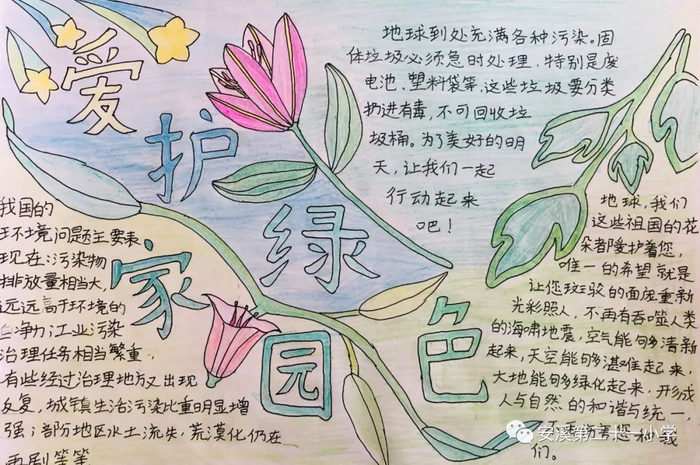 爱护绿色家园
地球到处充满各种污染。固
体垃圾必须急时处理，特别是废
电池、塑料袋等，这些垃圾要分类
扔进有毒，不可回收垃
圾桶。为了美好的明
天，让我们一起
行动起来
吧！
我国的
环境问题主要表
现在污染物
排放量相当大，
远远高于环境的
自净力，工业污染
治理任务相当繁重，
有些经过治理地方又出现
反复，城镇生活污染比重明显增
强；部份地区水土流失，荒漠化仍在
再剧等等
地球，我们
这些祖国的花
朵都爱护着您，
唯一的希望就是
让您的面庞重新
光彩照人，不再有吞噬人类
的海啸地震，空气能够清新
起来，天空能够湛蓝起来，
大地能够绿化起来，形成
人与自然的和谐与统一，
和我
们。
安溪第二十一小学